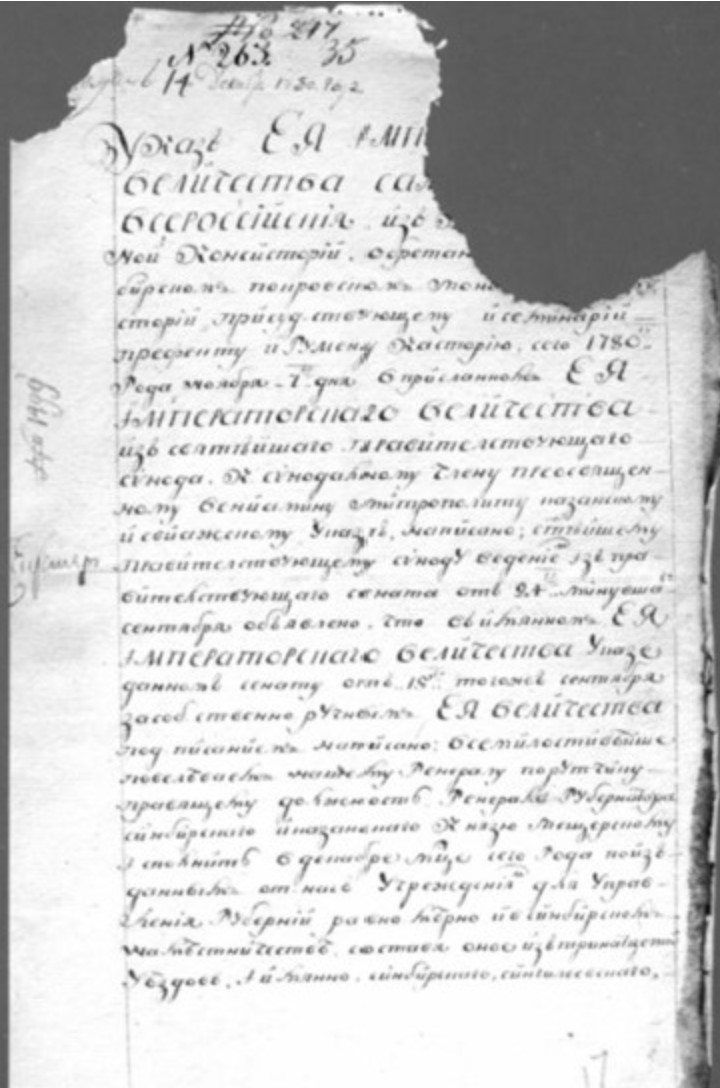 № 217
№ 263. 35
14 Декабр 1780 года
Указъ ЕЯ ИМП
ВЕЛИЧЕСТВА САМ
ВСЕРОССІЙСКІЯ, изъ
ной Консисторіи, обретаю
бирскомъ покровскомъ мона
сторіи присудствующему и семинаріи
префекту игумену Касторію, сего 1780:
года ноября 7 дня вприсланномъ ЕЯ
ИМПЕРАТОРСКАГО ВЕЛИЧЕСТВА
изъ святѣйшаго правителствующаго
сѵнода. К сѵнодалному члену преосвящен-
ному Веніамину митрополиту казанскому
и свіяжскому Указѣ, написано; стѣйшему
правителствующему сѵноду ведение изъ пра-
вителствующаго сената отъ 24 минувша
сентября объявлено, что въ имянномъ ЕЯ
ИМПЕРАТОРСКАГО ВЕЛИЧЕСТВА Указе
данномъ сенату отъ 15 тогожъ сентября
засобственноручнымъ ЕЯ ВЕЛИЧЕСТВА
подписаниемъ написано: всемилостивѣйше
повелѣваемъ нашему Генералу порутчику
правящему должность Генералъ Губернатора
синбирскаго иказанскаго Князю мещерскому
исполнить вдекабре мце сего года поиз-
даннымъ отнасъ Учрежденіямъ для Управ-
ленія Губерній равно мѣрно ивсинбирскомъ
намѣстничествѣ составя оное изътринатцети
Уѣздовъ, Аимянно. синбирскаго,